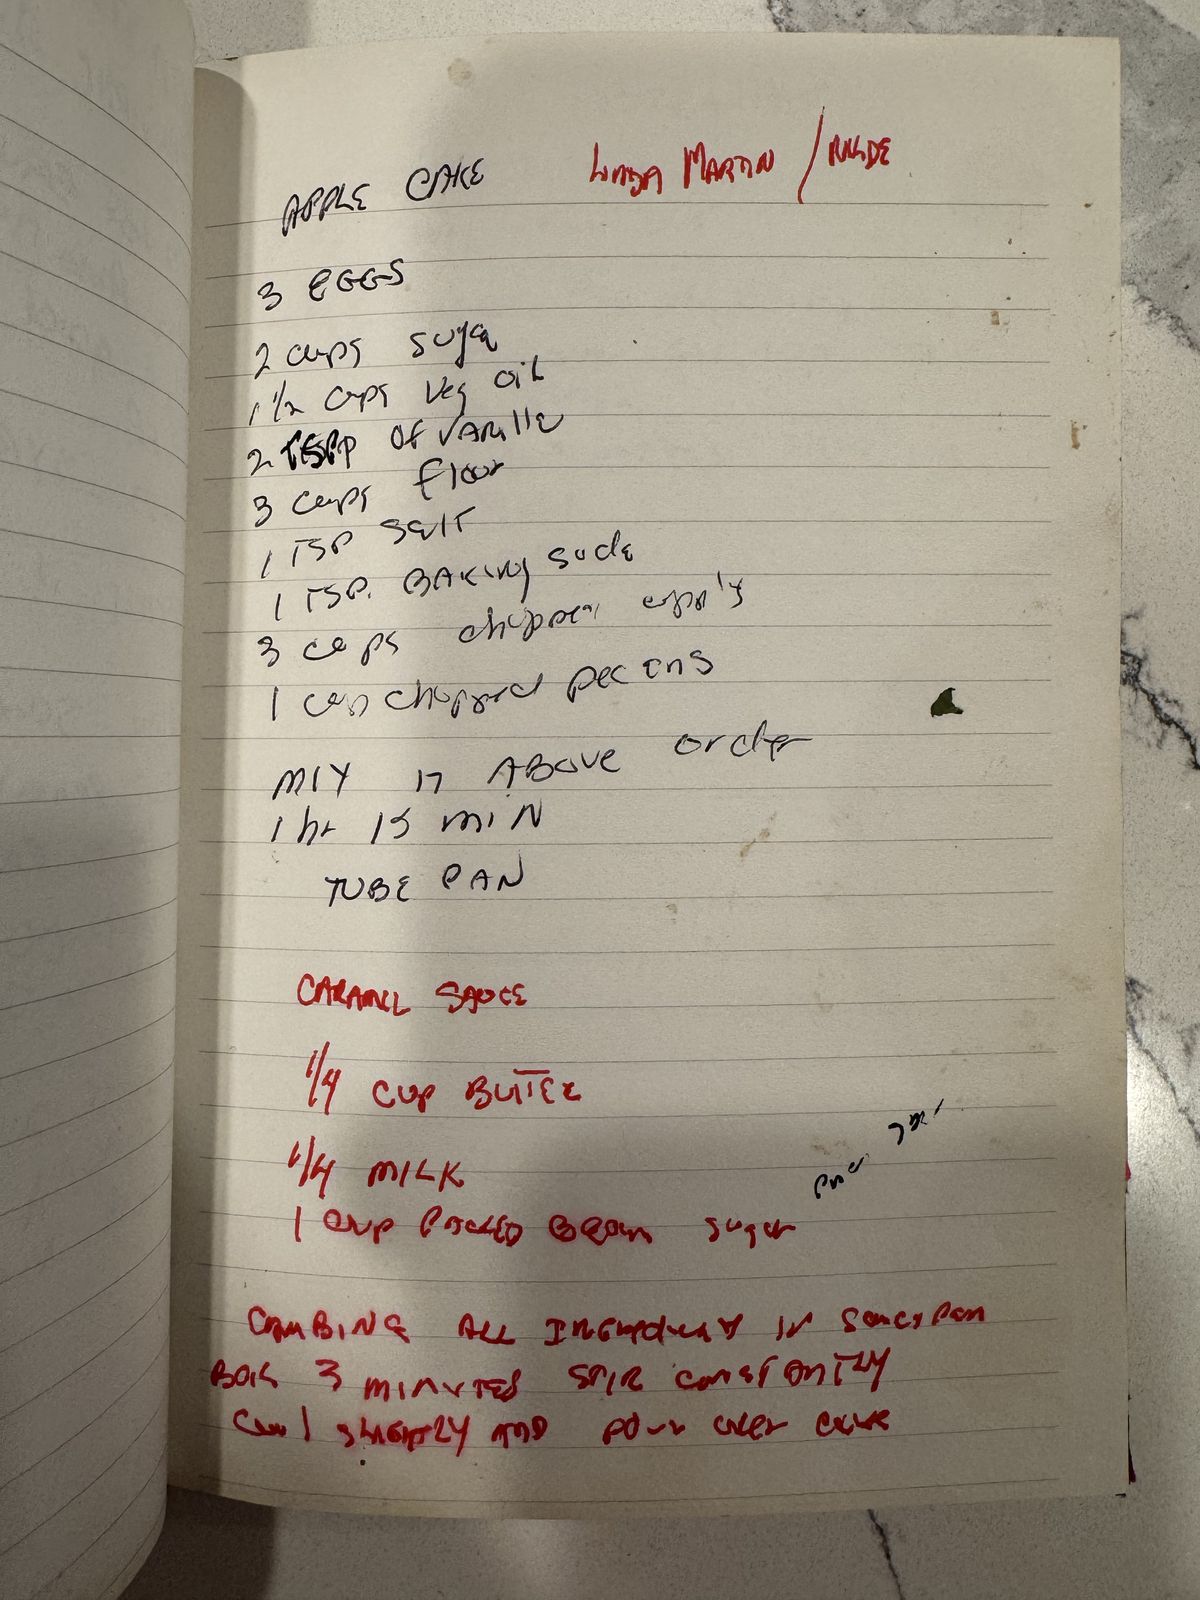 APPLE CAKE LINDA MARTIN /
3 EGGS
2 cups suga
1 1/2 cups Veg oil
2 TSPP of VANille
3 cups flour
1 TSP Salt
1 TSP. BAKING Soda
3 cups chopped
1 cup chopped pecans
MIX in ABOVE order
1 hr 15 MIN
TUBE PAN
CARAMEL SAUCE
1/4 CUP BUTTER
1/4 MILK
1 CUP PACKED BROWN sugar
COMBINE ALL IN Saucepan
BOIL 3 MINUTES STIR CONSTANTLY
Cool SLIGHTLY AND pour over cake